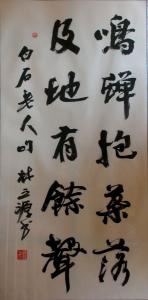 鳴蟬抱葉落
及地有餘聲
白石老人句 林立源书